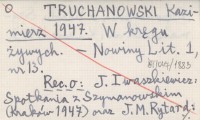 TRUCHANOWSKI Kazi-
mierz 1947. W kręgu
żywych. – Nowiny Lit. 1,
nr 13.
Rec. o: J. Iwaszkiewicz:
Spotkania z Szymanowskim
(Kraków 1947) oraz J. M. Rytard: